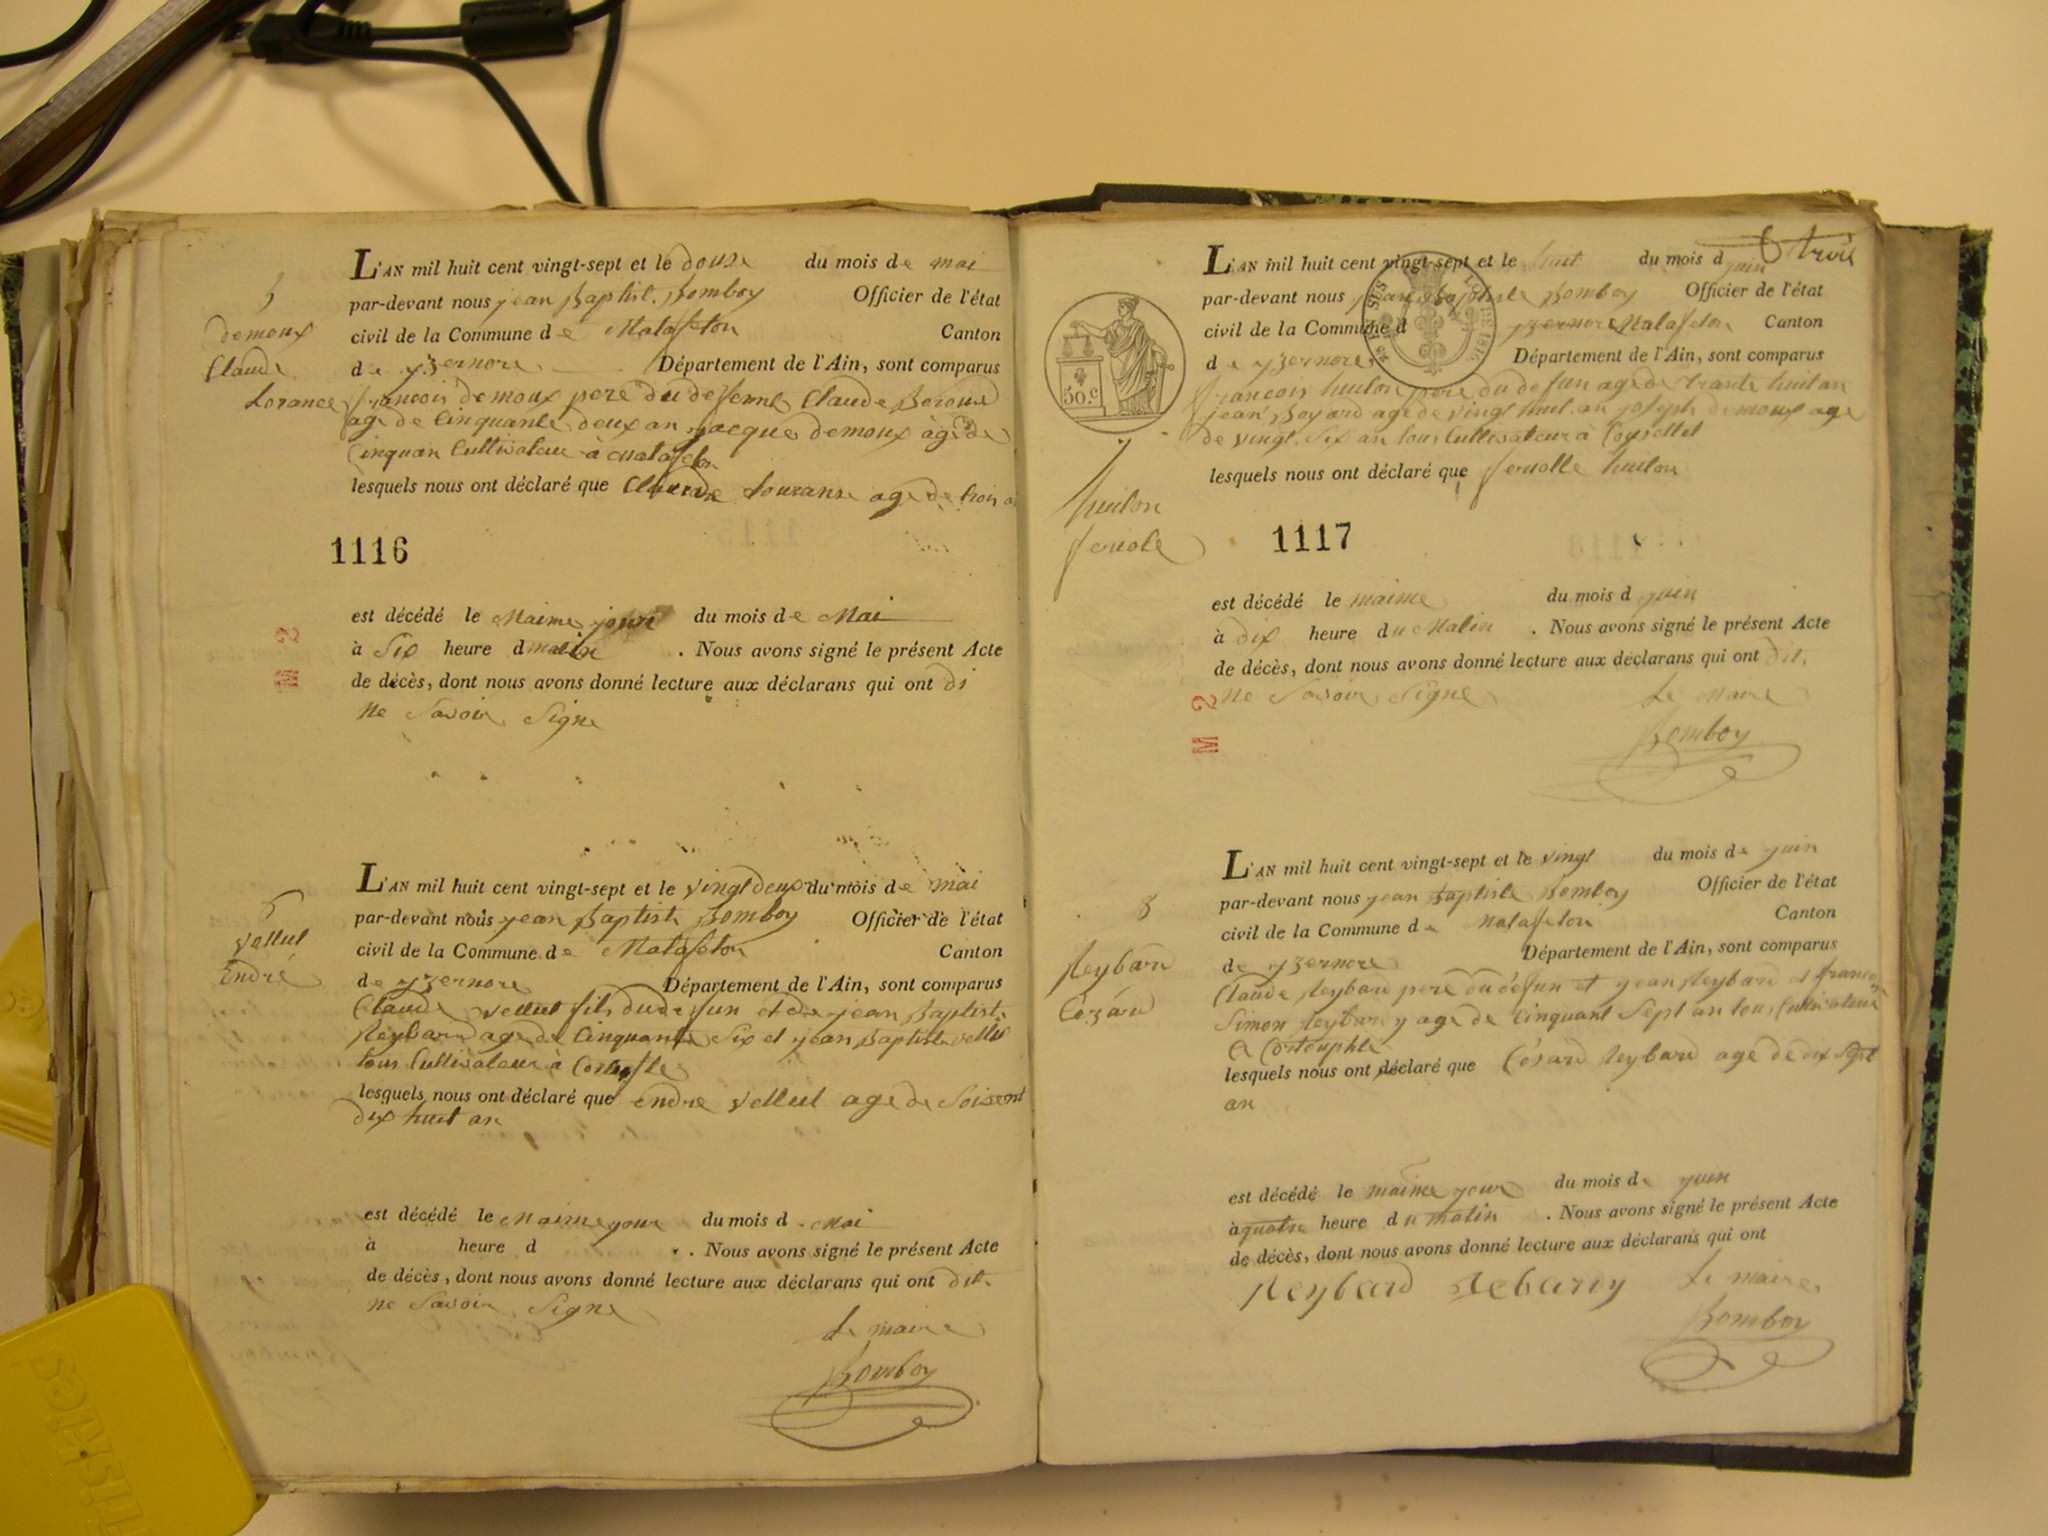 L'AN mil huit cent vingt-sept et le douze du mois de mai
par-devant nous jean Baptist. Bomboy Officier de l'état
civil de la Commune de Matafelon Canton
de yzernore Département de l'Ain, sont comparus
francois demoux pere du defenne Claude
age de Cinquante deux an jacque demoux àge de
Cinquan Cultivateur à Matafelon
lesquels nous ont déclaré que Claudre Louranse age de trois
5
demoux
Claude
Lorance
1116
est décédé le Maime jour du mois de Mai
à Six heure dmatin . Nous avons signé le présent Acte
de décès, dont nous avons donné lecture aux déclarans qui ont di
ne Savoir Signe
M 2
L'AN mil huit cent vingt-sept et le vingt deux du mois de mai
par-devant nous jean Baptist Bomboy Officier de l'état
civil de la Commune de Matafelon Canton
de yzernore Département de l'Ain, sont comparus
Claude vellut fils du defun et de jean Baptist
Reybard age de Cinquante Six et jean Baptiste vellu
tous Cultivateur à
lesquels nous ont déclaré que Endre Vellut age de Soisent
dix huit an
vellut
Endré
est décédé le Maime jour du mois d Mai
à heure d . Nous avons signé le présent Acte
de décès, dont nous avons donné lecture aux déclarans qui ont dit
ne Savoir Signe
Le maire
Bomboy
trois
L'AN mil huit cent vingt-sept et le huit du mois d juin
par-devant nous jean Baptiste Bomboy Officier de l'état
civil de la Commune d yzernore Matafelon Canton
de yzernore Département de l'Ain, sont comparus
francois huilon pere du defun age de trante huit an
jean Boyard age de vingt huit an joseph demoux age
de vingt Six an tous Cultivateur à Coysellet
lesquels nous ont déclaré que feruolle huilon
50.c
huilon
feruole
1117
est décédé le maime du mois d juin
à dix heure du Matin . Nous avons signé le présent Acte
de décès, dont nous avons donné lecture aux déclarans qui ont dit
ne Savoir Signe
Le Maire
Bomboy
M 2
L'AN mil huit cent vingt-sept et le vingt du mois de juin
par-devant nous jean Baptiste Bomboy Officier de l'état
civil de la Commune de Matafelon Canton
de yzernore Département de l'Ain, sont comparus
Claude Reybard pere du défun et jean Reybard et francoi
Simon Reybard y age de Cinquant Sept an tous Cultivateur
a
lesquels nous ont déclaré que César Reybard agé de dix Sept
an
3
Reybard
César
est décédé le maime jour du mois de juin
à quatre heure du matin . Nous avons signé le présent Acte
de décès, dont nous avons donné lecture aux déclarans qui ont
Reybard Rebardy Le maire
Bomboy